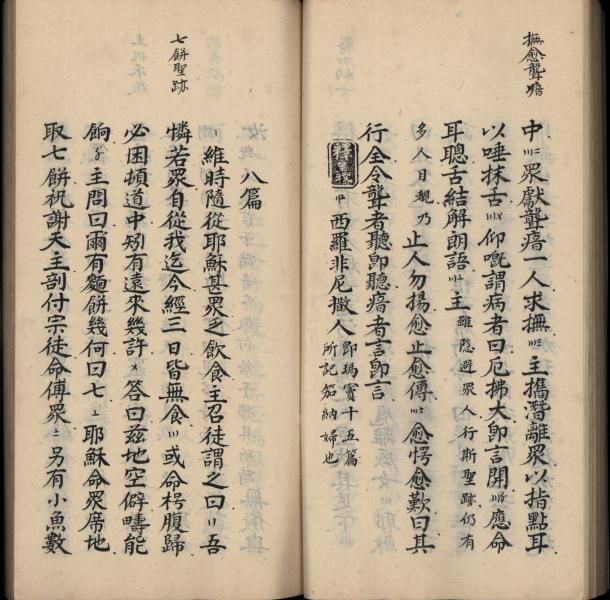 撫愈聾喑
中眾獻聾瘖一人求撫主攜潛離眾以指點耳
以唾抹舌仰嘅謂病者曰厄拂大即言開應命
耳聰舌結解朗語主雖隱避眾人行斯聖跡仍有
多人目覩乃止人勿揚愈止愈傳愈愕愈歎曰其
行全令聾者聽即聽瘖者言即言
西羅非尼撒人即瑪竇十五篇
所記笳納婦也
七餅聖跡
八篇
〡維時隨從耶穌甚眾乏飲食主召徒謂之曰〢吾
憐若眾自從我迄今經三日皆無食〣或命枵腹歸
必困頓道中矧有遠來幾許〤答曰茲地空僻疇能
餉〥主問曰爾有麵餅幾何曰七〦耶穌命眾席地
取七餅祝謝天主剖付宗徒命傅眾〧另有小魚數